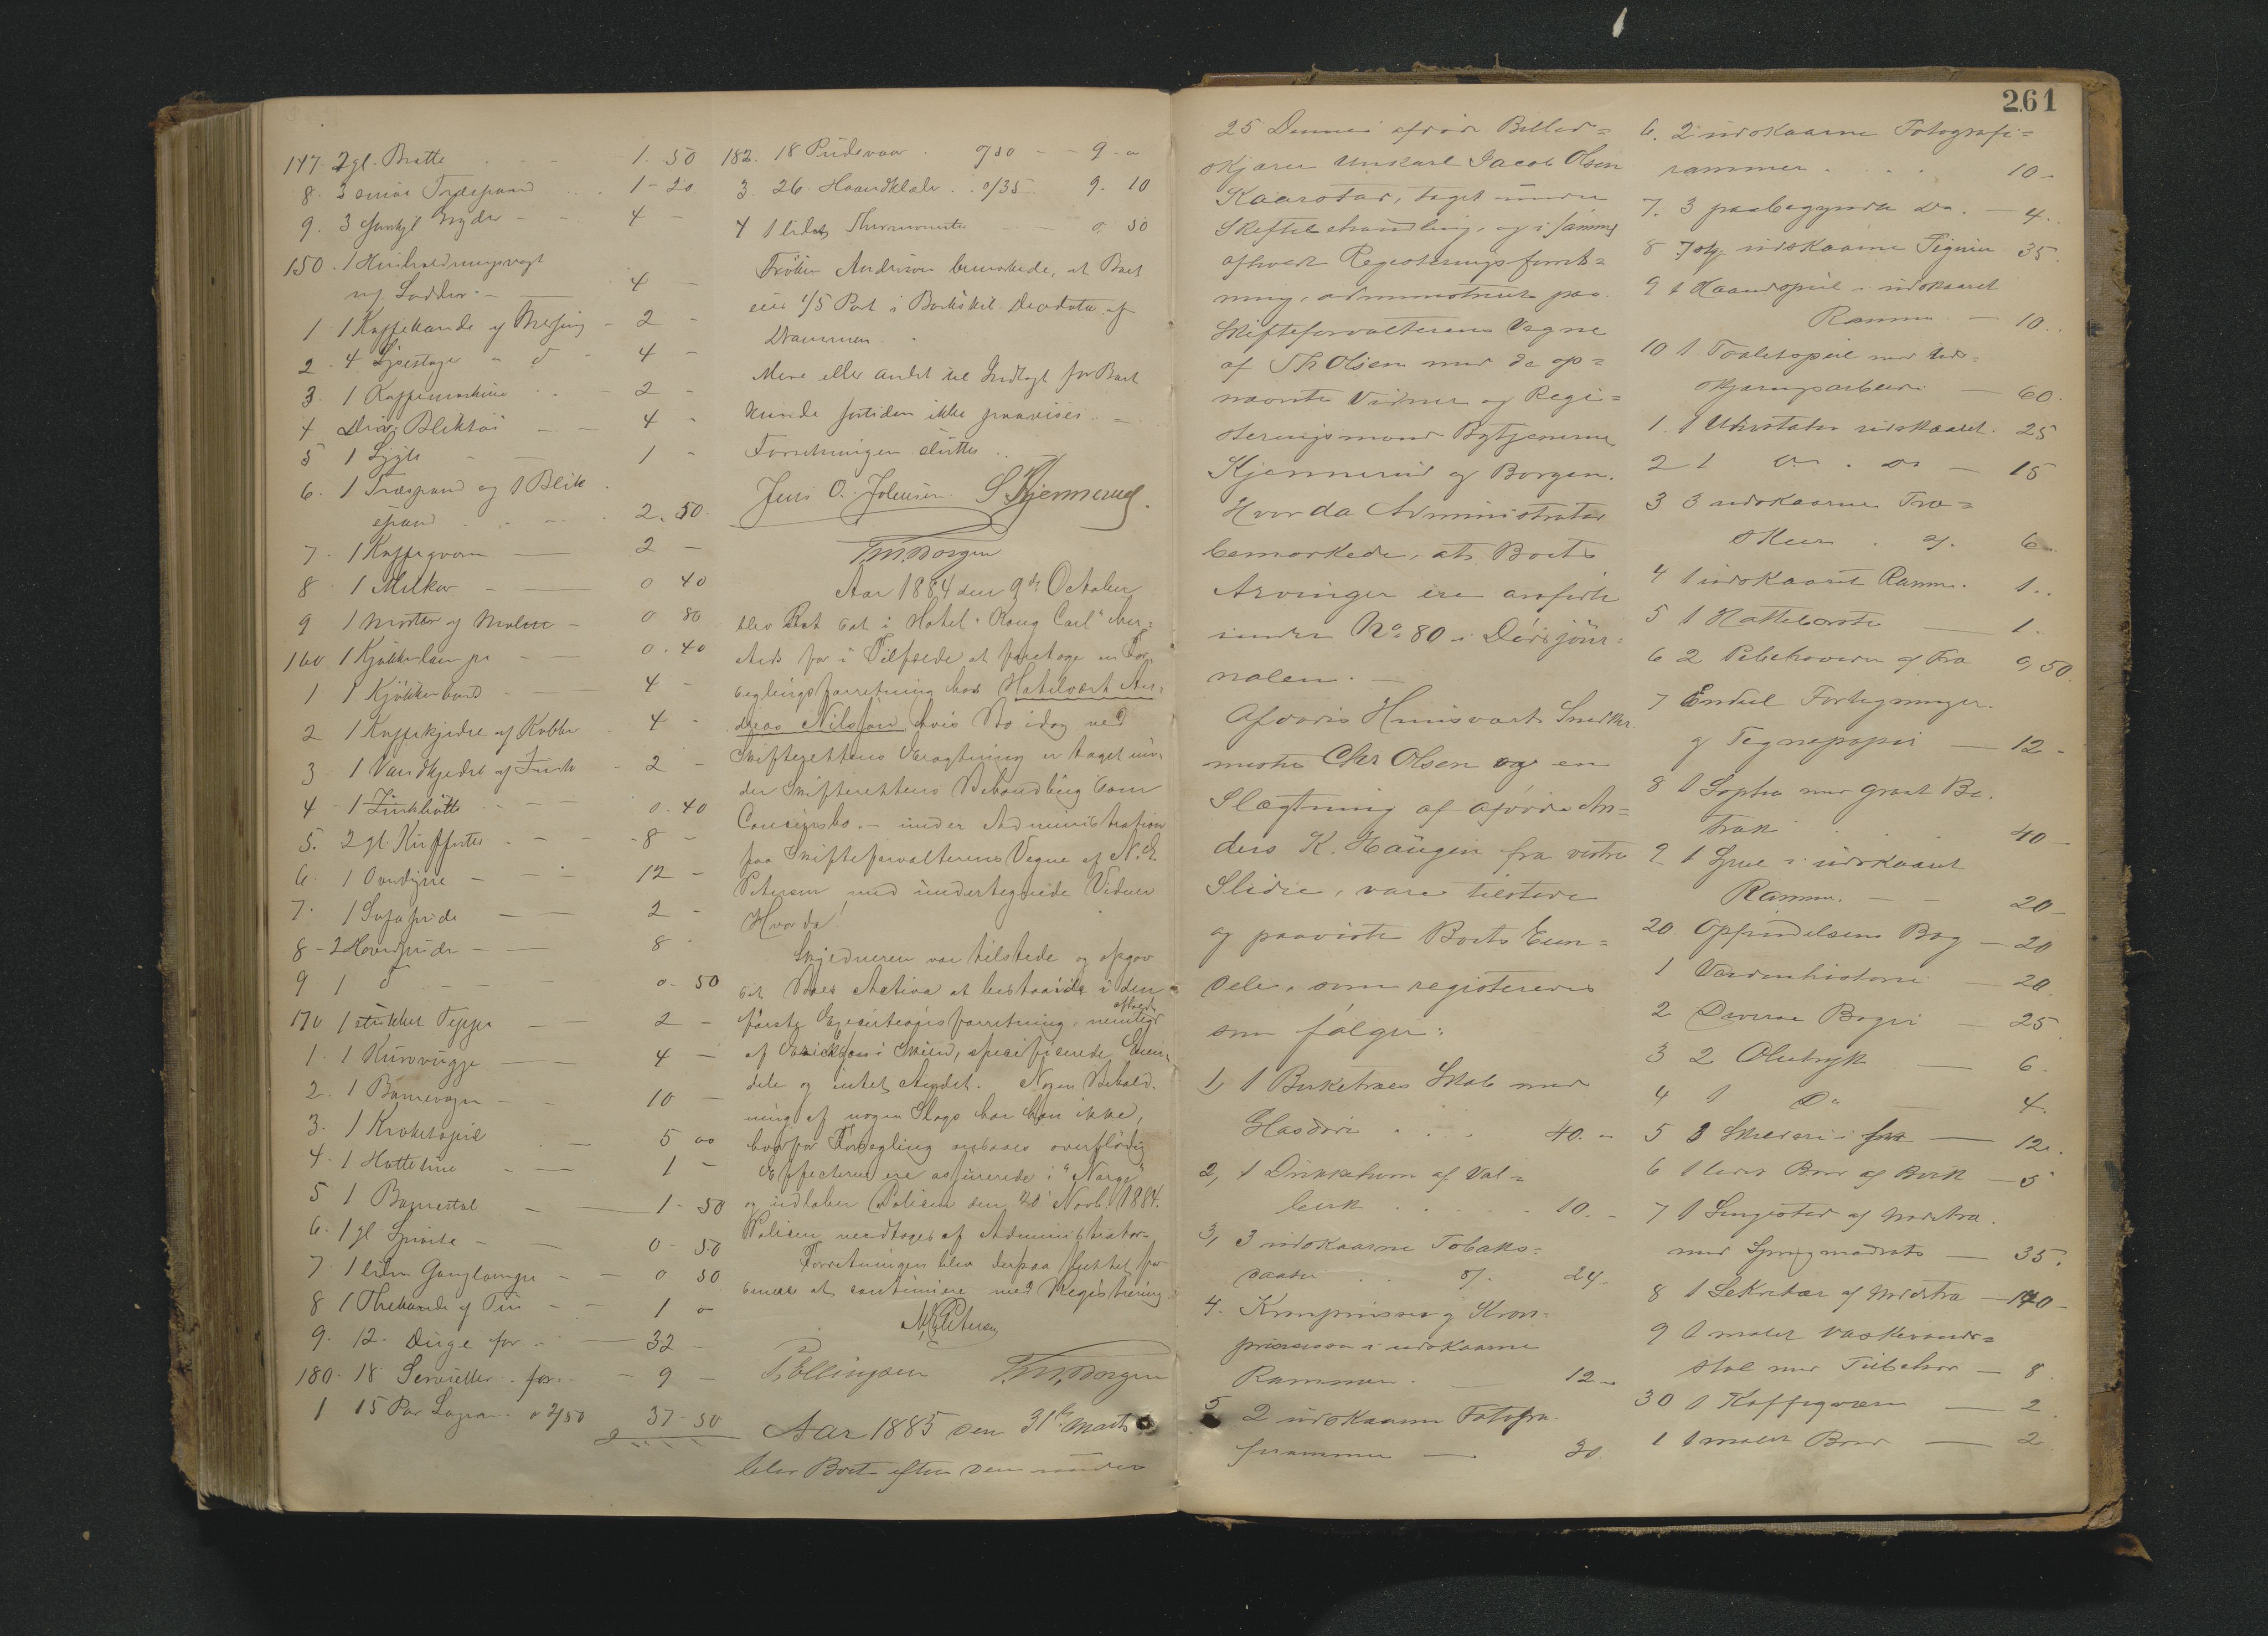 147. 2 gl. Brette 1. 50
8. 3 smaa Træspand 1 - 20
9. 3 Gryder 4 -
150. 1 Husholdningsvægt
m. Lodder 4 -
1 1 Kaffekande af Messing 2 -
2. 4 Lysestager " d 4 -
3. 1 Kaffemaskine 2 -
4 Div: Bliktöi 4 -
5 1 Lygte 1 -
6. 1 Træspand og 1 Blik
spand 2. 50
7. 1 Kaffeqværn 2 -
8. 1 Melkar 0 40
9 1 Morter 0 80
160 1 Kjøkkenlampe 0. 40
1 1 Kjökkenbord 4 -
2 1 Kaffekjedel af Kobber 4 -
3. 1 Vandkjedel af Zink 2 -
4 1 Zinkbötte 0. 40
5. 2 gl. Kufferter 8 -
6. 1 Overdyne 12 -
7. 1 Sofapude 2 -
8 - 2 Hovedpuder 8 -
9 1 d 0. 50
170 1 stukket Teppe 2 -
1. 1 Kurvvugge 4 -
2. 1 Barnevogn 10 -
3. 1 Kroketspil 5 00
4. 1 1 -
5 1 Barnestol 1 - 50
6. 1 gl. 0 - 50
7. 1 liden Ganglampe 0 50
8 1 Thekande af Tin 1 0
9. 12. Duge for 32 -
180. 18 Servietter for 9 -
1 15 Par Lagen a 2/50 37 50
182. 18 Pudevaar 9 -
3. 26. Haandklæder a/35 9. 10
4 1 lidet Thermometer 0. 50
Fröken Andersen bemærkede, at Boet
eier 1/5 Part i Barkskib Deodata af
Drammen.
Mere eller andet til Indtægt for Boet
kunde fortiden ikke paavises.
Forretningen sluttet.
Jens O. Johnsen. S. Kjennerud.
T. M. Borgen
Aar 1884 den 9de October
blev Ret sat i Hotel "Kong Carl" her-
steds for i Tilfælde at foretage en For-
seglingsforretning hos Hotelvært An-
dreas Nilsson, hvis Bo idag ved
Skifterettens Beragtning er taget un-
der Skifterettens Behandling som
Concursbo. - under Administration
paa Skifteforvalterens Vegne af N. E.
Petersen med undertegnede Vidner
Hvorda
Skyldneren var tilstede og opgav
sit Boes Activa at bestaa i den
afholdte
første Executionsforretning, nemlig
af i Skien, specificerede Eien-
dele og intet Andet. Nogen Behold-
ning af nogen Slags har han ikke,
hvorfor Forsegling ansaaes overflödig
Effecterne ere assurerede i "Norge"
og udløber Polisen den 20 Novb. 1884.
Polisen modtoges af Administrator.
Forretningen blev derpaa sluttet for
senere at continuere med Registrering.
N. E. Petersen
P. Ellingsen T. M. Borgen
Aar 1885 den 31te Marts
blev Boet efter den under
261
25 Dennes afdøde Billed=
skjærer Unkarl Jacob Olsen
Kaarstad, taget under
Skiftebehandling, og i samme
afholdt Registreringsforret=
ning, administreret paa
Skifteforvalterens Vegne
af Th Olsen med de op=
nævnte Vidner og Regi=
streringsmænd Bytjenerne
Kjennerud og Borgen.
Hvorda Administrator
bemærkede, at Boets
Arvinger ere anførte
under No 80 i Dødsjour=
nalen. -
Afdødes Huusvært Snedker
mester Chr Olsen og en
Slægtning af afdøde An=
ders K. Haugen fra vestre
Slidre, vare tilstede
og paaviste Boets Eien=
dele, som registreredes
som følger:
1, 1 Birketræes Skab med
Glasdøre 40. -
2, 1 Drikkehorn af Val=
birk 10. -
3, 3 udskaarne Tobaks=
daaser 8/. 24. -
4. Kronprinsen og Kron-
prinsessen i udskaarne
Rammer. 12. -
5 2 udskaarne Fotogra-
firammer 30
6. 2 udskaarne Fotografi=
rammer 10 -
7. 3 paabegyndte Do. 4.
8 7 stk. udskaarne Figurer 35.
9 1 Haandspeil i udskaaret
Ramme 10.
10 1 Toiletspeil med Ud=
skjæringsarbeide 60.
1. 1 Uhrstativ udskaaret. 25
2 1 do. do 15
3 3 udskaarne Træ=
skeer 2/. 6.
4 1 udskaaret Ramme. 1..
5 1 Hattebørste 1.
6 2 Pibehoveder af Træ 0,50
7 Endeel Fortegninger
og Tegnepapir 12 -
8 1 Sopha med graat Be-
træk 40 -
9 1 Speil i udskaaret
Ramme. 20 -
20 Opfindelsens Bog 20
1 Verdenshistorie 20.
2 Diverse Bøger 25.
3 2 Olietryk 6.
4 1 Do 4.
5 12.
6 1 lidet Bord af Birk 5
7 1 Sengested af Nødetræ
med Springmadrats 35.
8 1 Sekretær af Nødetræ 140 -
9 1 malet Vaskevands=
stol med Tilbehør 8.
30 1 Kaffeqværn 2
1 1 malet Bord 2